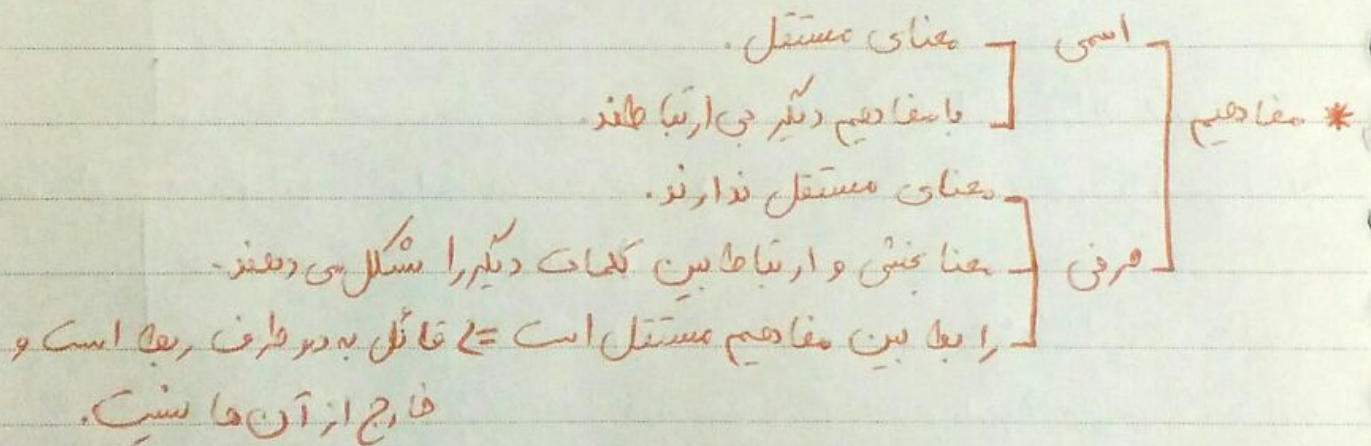 * مفاهیم
اسمی
معنای مستقل.
با مفاهیم دیگر بی ارتباطند.
حرفی
معنای مستقل ندارند.
معنا بخشی و ارتباط بین کلمات دیگر را شکل می دهند.
رابط بین مفاهیم مستقل است => قائل به دو طرف ربط است و
خارج از آن ها نیست.